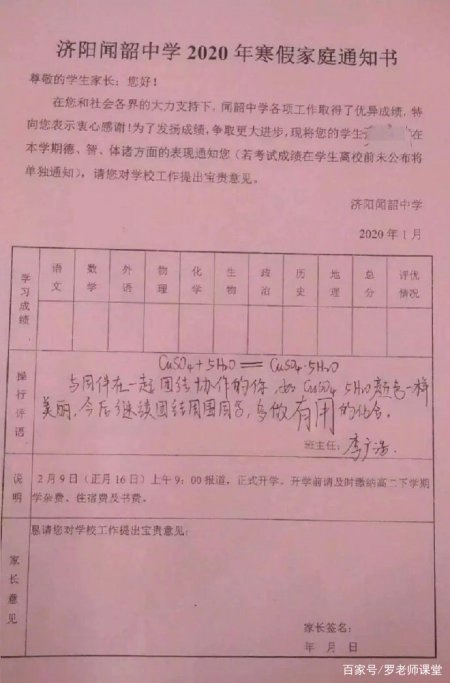 济阳闻韶中学 2020 年寒假家庭通知书
尊敬的学生家长：您好！
在您和社会各界的大力支持下，闻韶中学各项工作取得了优异成绩，特
向您表示衷心感谢！为了发扬成绩，争取更大进步，现将您的学生 在
本学期德、智、体诸方面的表现通知您（若考试成绩在学生离校前未公布将
单独通知），请您对学校工作提出宝贵意见。
济阳闻韶中学
2020 年 1 月
学习成绩 语文 数学 外语 物理 化学 生物 政治 历史 地理 总分 评优情况
操行评语
CuSO4+5H2O == CuSO4·5H2O
与同伴在一起团结协作的你，如 CuSO4·5H2O 颜色一样
美丽。今后继续团结周围同学，多做有用的化合。
班主任：李广浩
说明
2 月 9 日（正月 16 日）上午 9：00 报道，正式开学。开学前请及时缴纳高二下学期
学杂费、住宿费及书费。
家长意见
恳请您对学校工作提出宝贵意见：
家长签名：
年 月 日
百家号/罗老师课堂